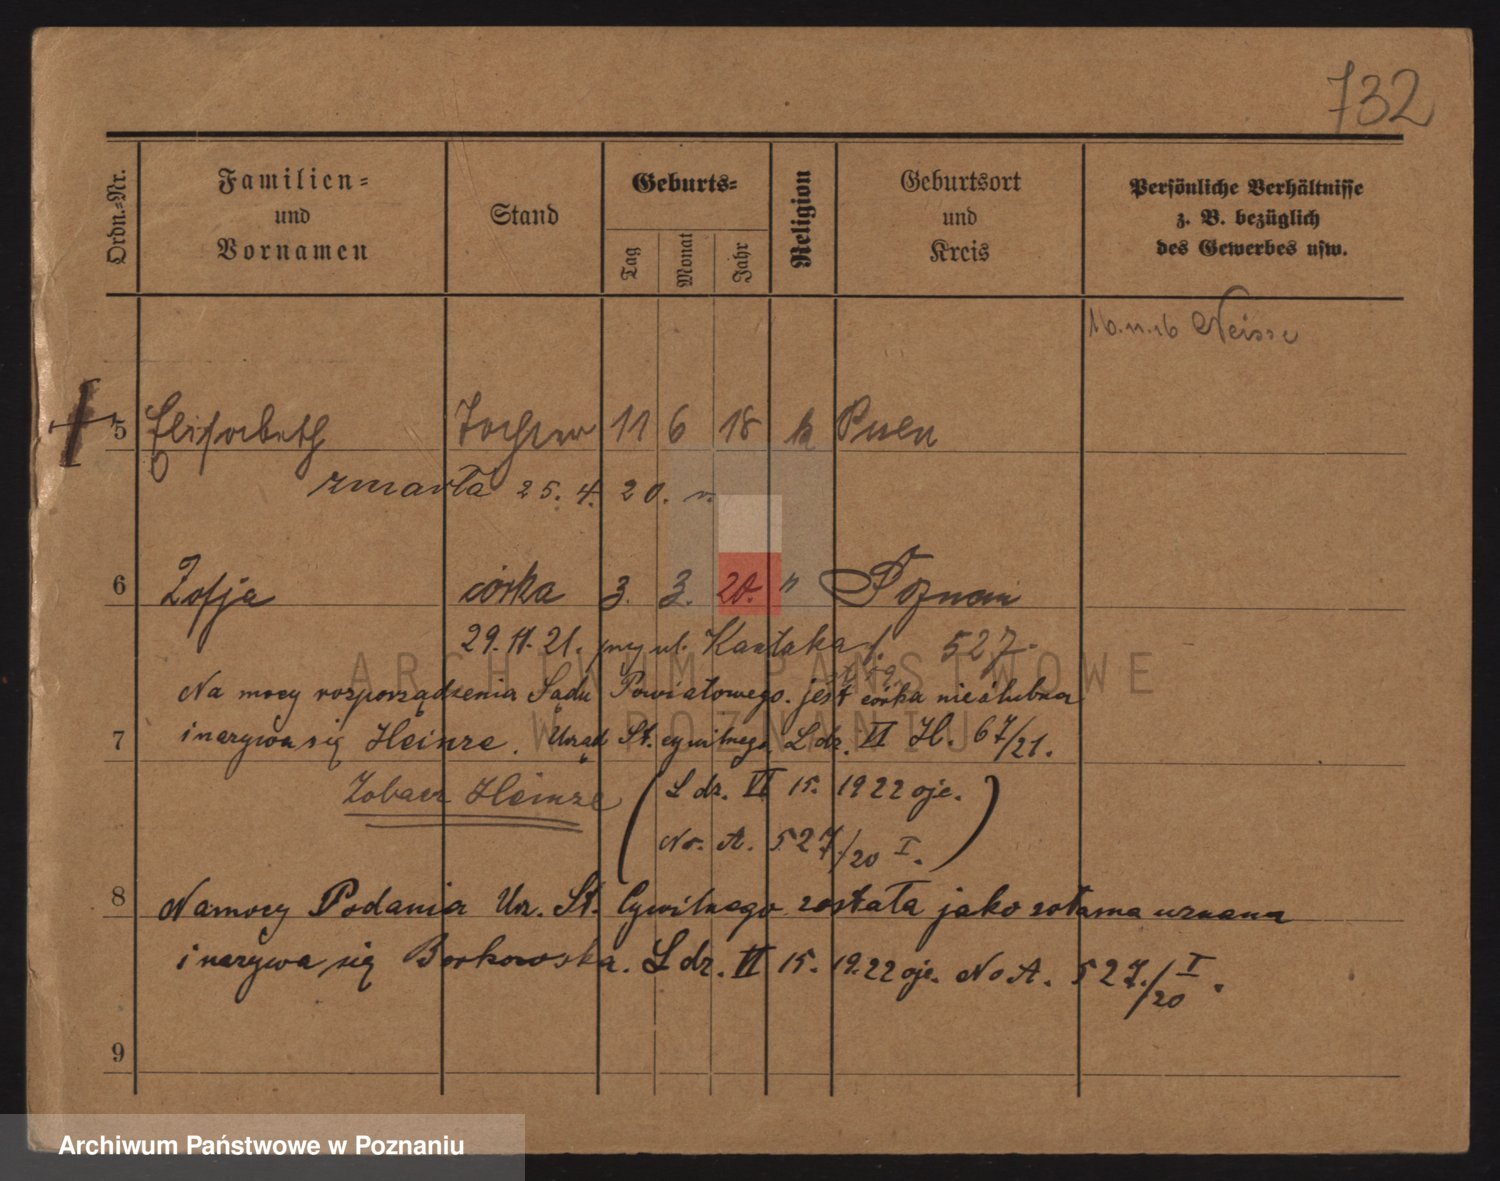 732
Ordn.-Nr.
Familien-
und
Vornamen
Stand
Geburts-
Tag
Monat
Jahr
Religion
Geburtsort
und
Kreis
Persönliche Verhältnisse
z. B. bezüglich
des Gewerbes usw.
16.11.16 Neisse
5 Elisabeth Tochter 11 6 18 k Posen
zmarła 25. 4. 20. r.
6 Zofja córka 3. 3. 20. " Poznań
29. 11. 21. przy ul. Kantaka 527.
Na mocy rozporządzenia Sądu Powiatowego jest córka nieślubna
7 i nazywa się Heinze. Urząd St. cywilnego L dz. VI H. 67/21.
Zobacz Heinze ( L dz. VI 15. 1922 oje.
No. A. 527/20 I. )
8 Na mocy Podania Urz. St. Cywilnego została jako uznana
i nazywa się Borkowska. L dz. VI 15. 1922 oje. No A. 527/20 I.
9
ARCHIWUM PAŃSTWOWE
W POZNANIU
Archiwum Państwowe w Poznaniu